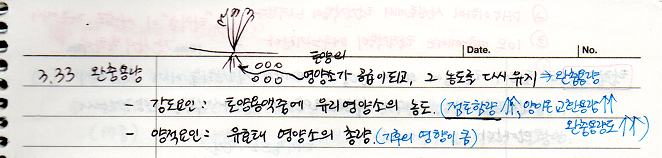 Date.
No.
3.33 완충용량
토양의
영양소가 공급이되고, 그 농도를 다시 유지 → 완충용량
- 강도요인 : 토양용액중에 유리영양소의 농도. (점토함량↑↑, 양이온교환용량↑↑
완충용량도↑↑)
- 양적요인 : 유효태 영양소의 총량. (기후의 영향이 큼)